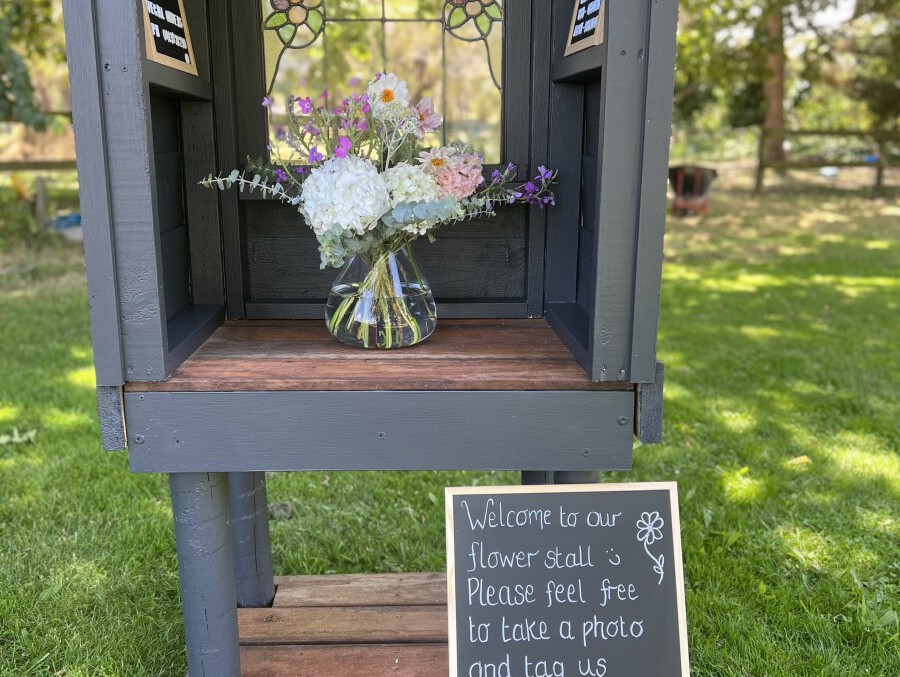 Welcome to our
flower stall :)
Please feel free
to take a photo
and tag us